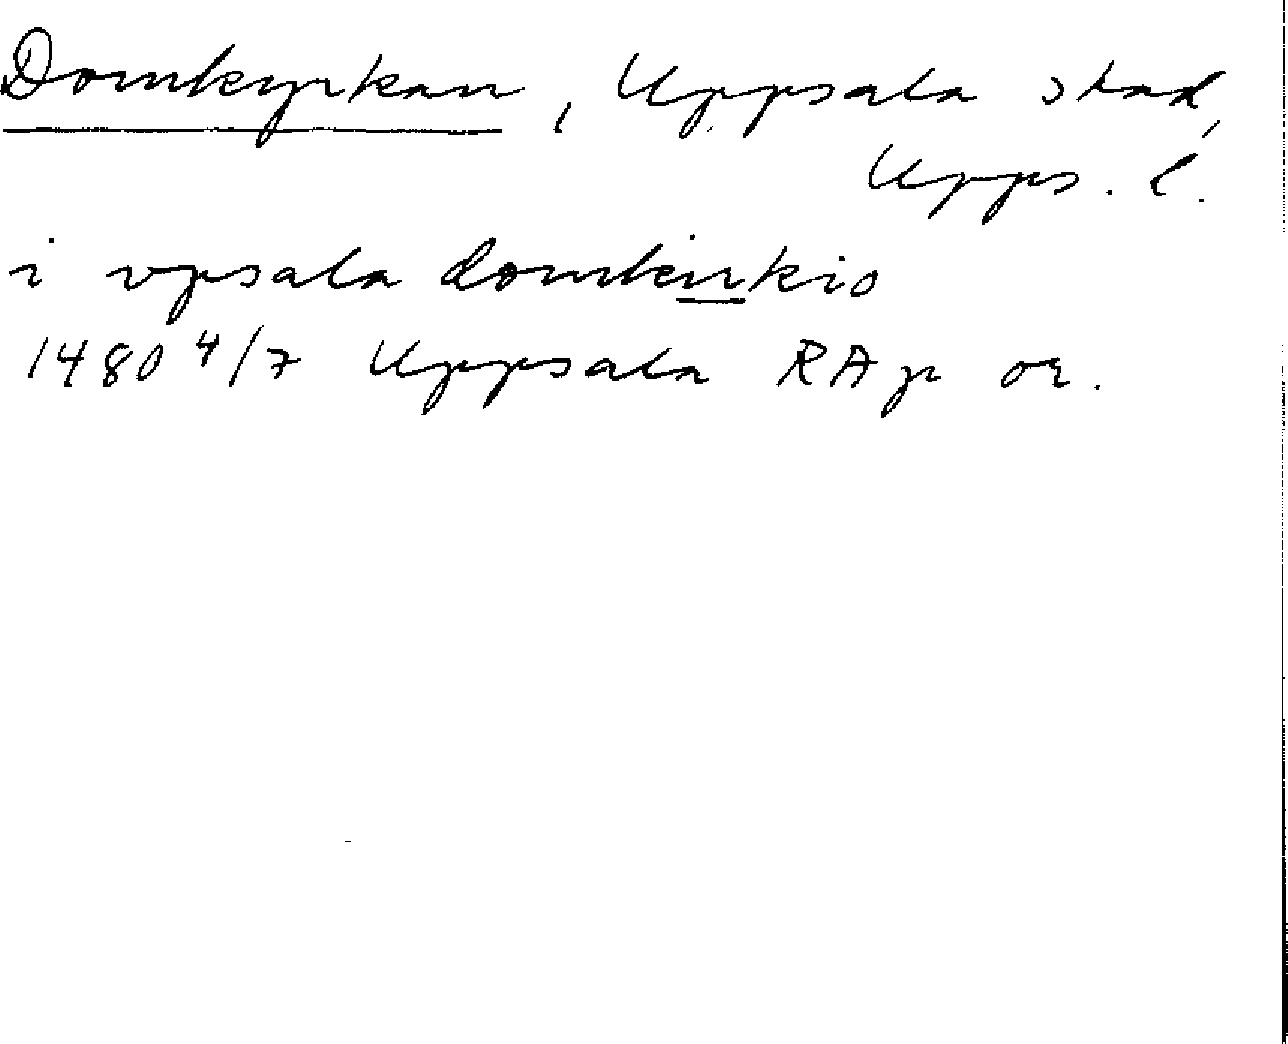 Domkyrkan, Uppsala stad,
Upps. l.
i vpsala domkirkio
1480 4/7 Uppsala RAp or.